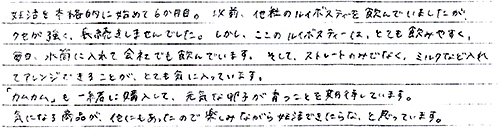 妊活を本格的に始めて6か月目。以前、他社のルイボスティーを飲んでいましたが
クセが強く、長続きしませんでした。しかし、ここのルイボスティーは、とても飲みやすく、
毎日、水筒に入れて会社でも飲んでいます。そして、ストレートのみでなく、ミルクなど入れ
てアレンジできることが、とても気に入っています。
「カムカム」も一緒に購入して、元気な卵子が育つことを期待しています。
気になる商品が、他にもあったので楽しみながら妊活できたらな、と思っています。